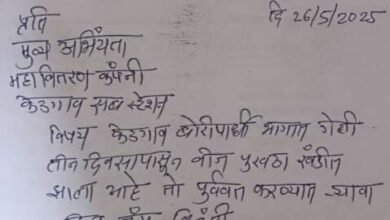 दि 26/5/2025
प्रति
मुख्य अभियंता
महावितरण कंपनी
केडगाव सब स्टेशन
विषय केडगाव बोरीपार्धी भागात गेली
तीन दिवसापासून वीज पुरवठा खंडीत
झाला आहे तो पुर्ववत करण्यात यावा